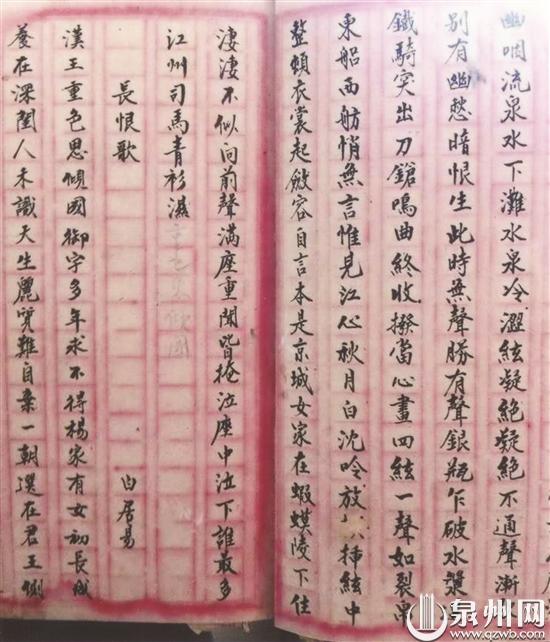 幽咽流泉水下灘水泉冷澀絃凝絕凝絕不通聲漸
別有幽愁暗恨生此時無聲勝有聲銀瓶乍破水漿
鐵騎突出刀鎗鳴曲終收撥當心畫四絃一聲如裂帛
東船西舫悄無言惟見江心秋月白沈吟放插絃中
整頓衣裳起斂容自言本是京城女家在蝦蟆陵下住
淒淒不似向前聲滿座重聞皆掩泣座中泣下誰最多
江州司馬青衫濕
長恨歌 白居易
漢王重色思傾國御宇多年求不得楊家有女初長成
養在深閨人未識天生麗質難自棄一朝選在君王側
泉州网
www.qzwb.com